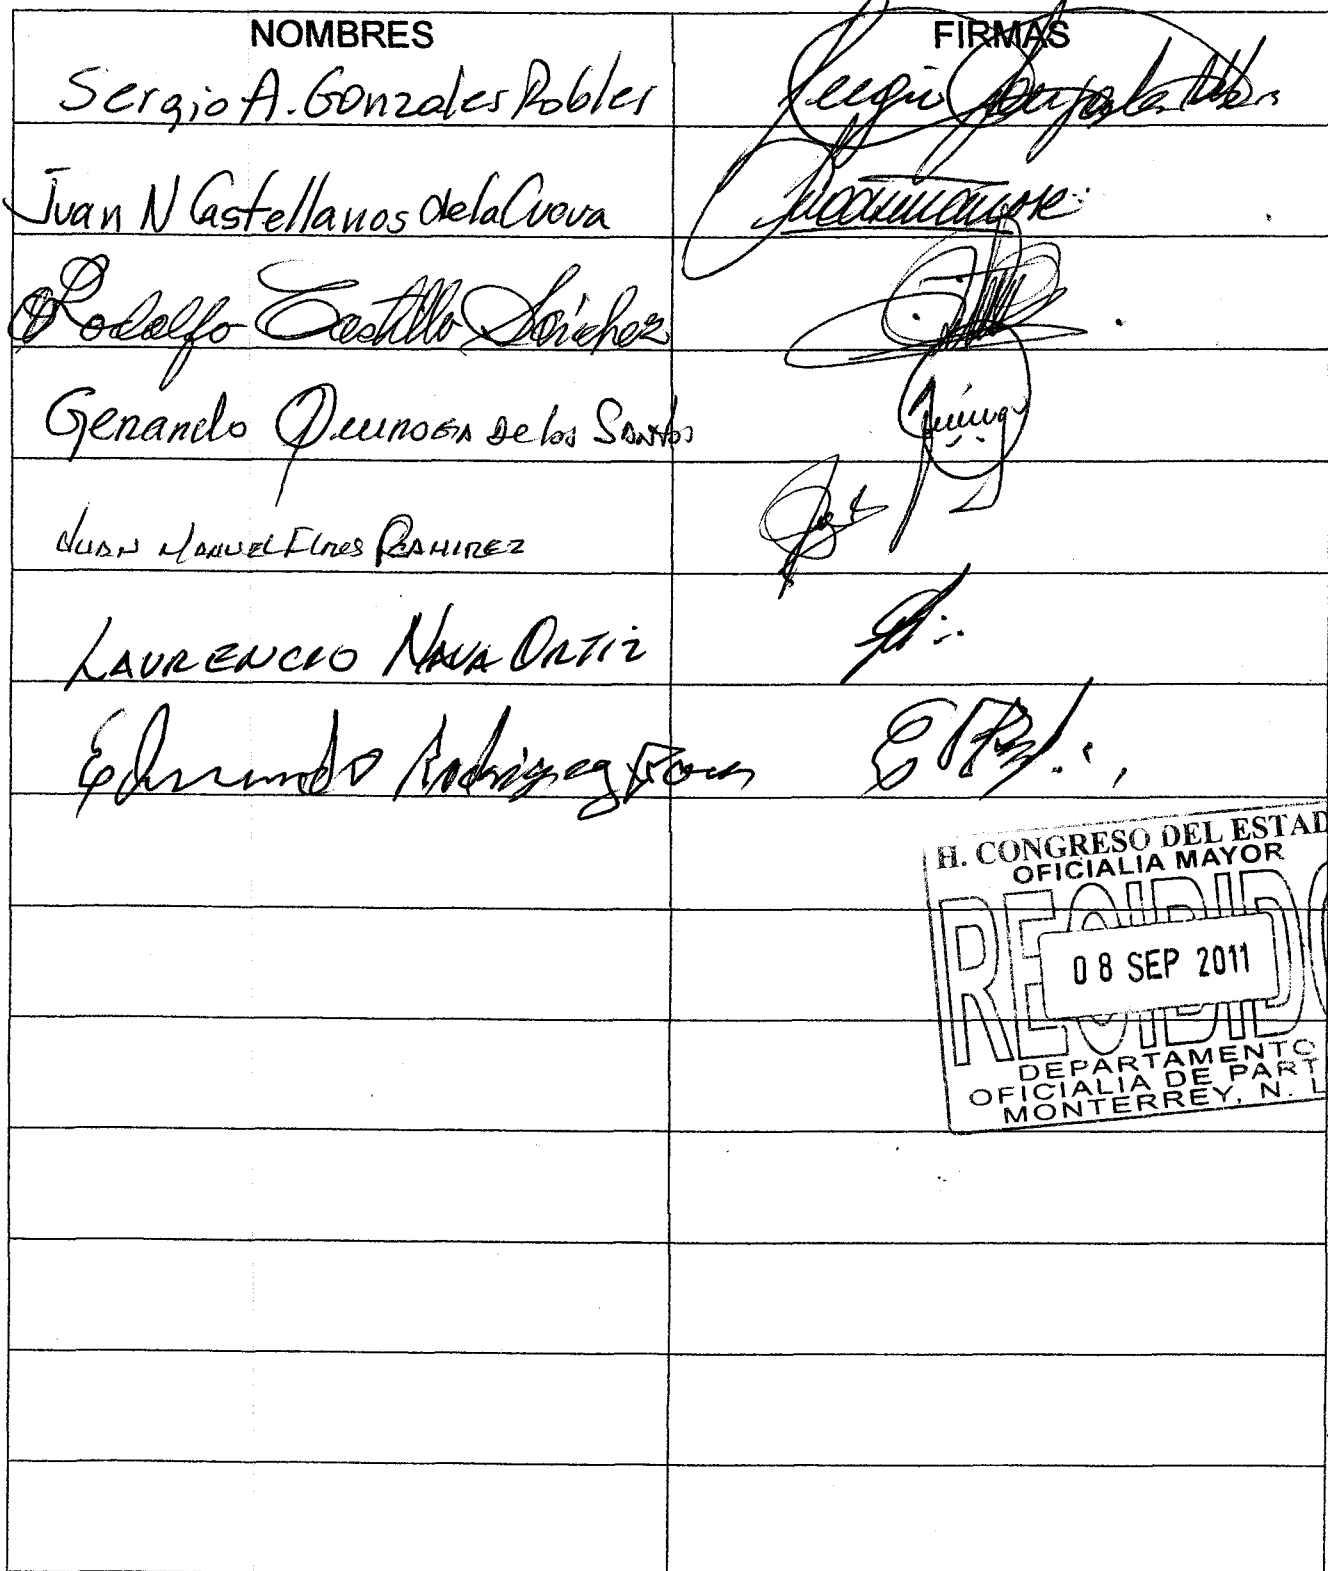 NOMBRES FIRMAS
Sergio A. Gonzales Robles
Juan N Castellanos de la Cueva
Rodolfo Castillo Sánchez
Genardo Quiroga de los Santos
JUAN MANUEL Flores RAMIREZ
LAURENCIO NAVA ORTIZ
Edmundo Rodriguez
H. CONGRESO DEL ESTAD
OFICIALIA MAYOR
RECIBIDO
08 SEP 2011
DEPARTAMENTO
OFICIALIA DE PART
MONTERREY, N. L